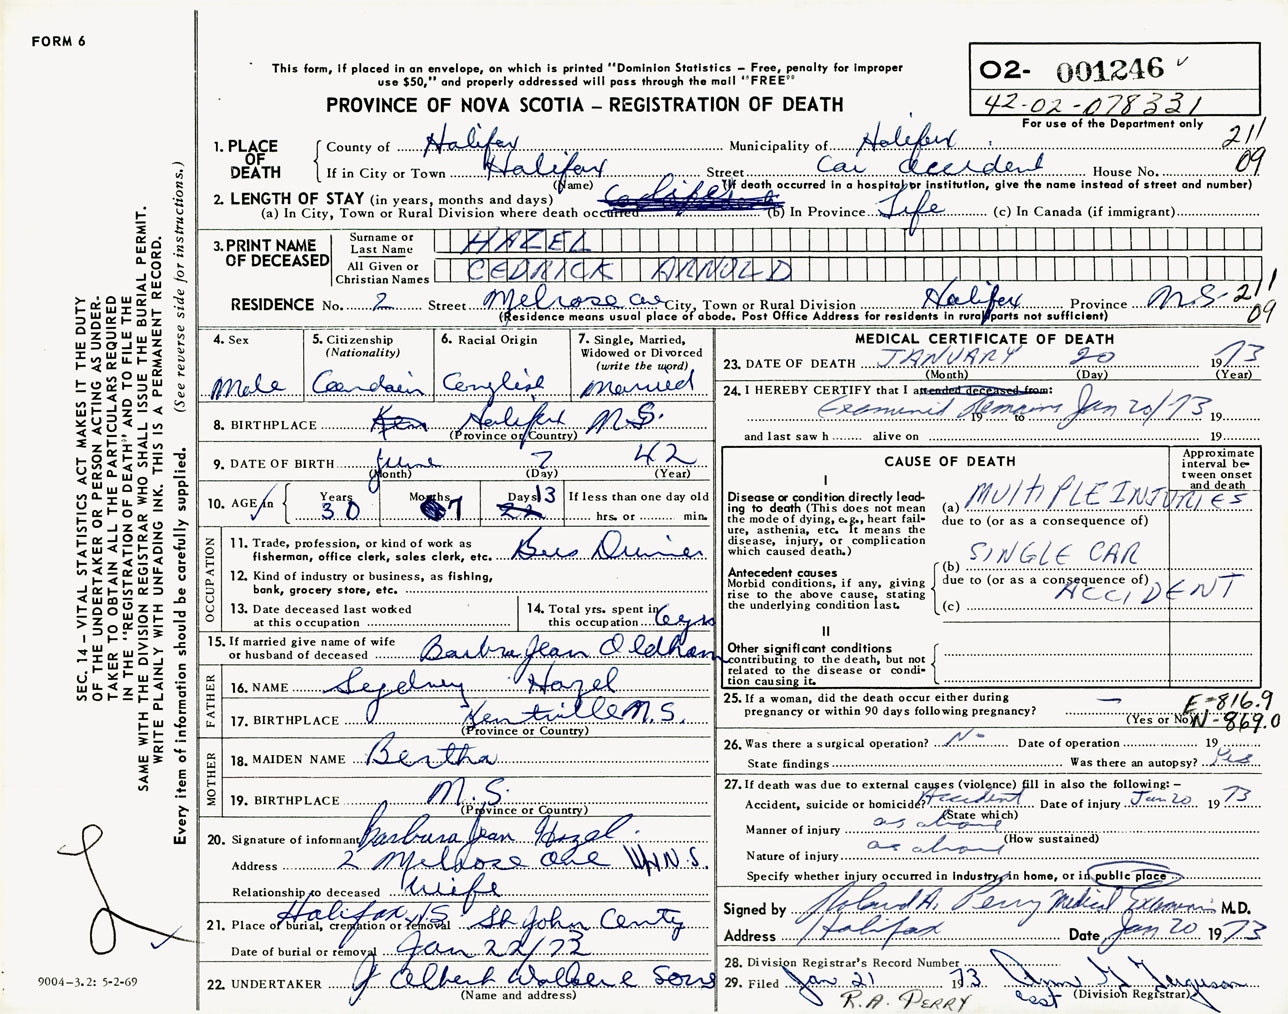 FORM 6
This form, if placed in an envelope, on which is printed "Dominion Statistics – Free, penalty for improper
use $50," and properly addressed will pass through the mail "FREE"
PROVINCE OF NOVA SCOTIA – REGISTRATION OF DEATH
02- 001246
42-02-078331
For use of the Department only
211
09
1. PLACE OF DEATH
County of Halifax Municipality of Halifax
If in City or Town Halifax Street Car accident House No.
(Name) (If death occurred in a hospital or institution, give the name instead of street and number)
2. LENGTH OF STAY (in years, months and days)
(a) In City, Town or Rural Division where death occurred (b) In Province Life (c) In Canada (if immigrant)
3. PRINT NAME OF DECEASED
Surname or Last Name HAZEL
All Given or Christian Names CEDRICK ARNOLD
RESIDENCE No. 2 Street Melrose ave City, Town or Rural Division Halifax Province N.S. 211
09
(Residence means usual place of abode. Post Office Address for residents in rural parts not sufficient)
4. Sex Male
5. Citizenship (Nationality)
6. Racial Origin English
7. Single, Married, Widowed or Divorced (write the word) Married
8. BIRTHPLACE Halifax N.S.
(Province or Country)
9. DATE OF BIRTH June 7 42
(Month) (Day) (Year)
10. AGE in Years 30 Months 7 Days 13 22 If less than one day old
hrs. or min.
OCCUPATION
11. Trade, profession, or kind of work as
fisherman, office clerk, sales clerk, etc. Bus Driver
12. Kind of industry or business, as fishing,
bank, grocery store, etc.
13. Date deceased last worked
at this occupation
14. Total yrs. spent in
this occupation 6 yrs
15. If married give name of wife
or husband of deceased Barbra Jean Oldham
FATHER
16. NAME Seydney Hazel
17. BIRTHPLACE Kentville N.S.
(Province or Country)
MOTHER
18. MAIDEN NAME Bertha
19. BIRTHPLACE N.S.
(Province or Country)
20. Signature of informant Barbara Jean Hazel.
Address 2 Melrose ave N.S.
Relationship to deceased Wife
21. Place of burial, cremation or removal Halifax NS St John Centy
Date of burial or removal Jan 22/73
22. UNDERTAKER Sons
(Name and address)
MEDICAL CERTIFICATE OF DEATH
23. DATE OF DEATH JANUARY 20 1973
(Month) (Day) (Year)
24. I HEREBY CERTIFY that I attended deceased from:
Examined Remains Jan 20/73
19 to 19
and last saw h alive on 19
CAUSE OF DEATH
Approximate interval between onset and death
I
Disease or condition directly leading to death (This does not mean the mode of dying, e.g., heart failure, asthenia, etc. It means the disease, injury, or complication which caused death.)
(a) MULTIPLE INJURIES
due to (or as a consequence of)
Antecedent causes
Morbid conditions, if any, giving rise to the above cause, stating the underlying condition last.
(b) SINGLE CAR
due to (or as a consequence of)
(c) ACCIDENT
II
Other significant conditions
contributing to the death, but not related to the disease or condition causing it.
25. If a woman, did the death occur either during
pregnancy or within 90 days following pregnancy? —
(Yes or No)
E-816.9
N-869.0
26. Was there a surgical operation? No Date of operation 19
State findings Was there an autopsy? Yes
27. If death was due to external causes (violence) fill in also the following: –
Accident, suicide or homicide? Accident Date of injury Jan 20 1973
(State which)
Manner of injury as above
(How sustained)
Nature of injury as above
Specify whether injury occurred in industry, in home, or in public place
Signed by Roland A. Perry Medical Examiner M.D.
Address Halifax Date Jan 20 1973
28. Division Registrar's Record Number
29. Filed Jan 21 1973 Ferguson
(Division Registrar)
R.A. PERRY
SEC. 14 – VITAL STATISTICS ACT MAKES IT THE DUTY
OF THE UNDERTAKER OR PERSON ACTING AS UNDERTAKER
TO OBTAIN ALL THE PARTICULARS REQUIRED
IN THE "REGISTRATION OF DEATH" AND TO FILE THE
SAME WITH THE DIVISION REGISTRAR WHO SHALL ISSUE THE BURIAL PERMIT.
WRITE PLAINLY WITH UNFADING INK. THIS IS A PERMANENT RECORD.
Every item of information should be carefully supplied. (See reverse side for instructions.)
9004–3.2: 5-2-69